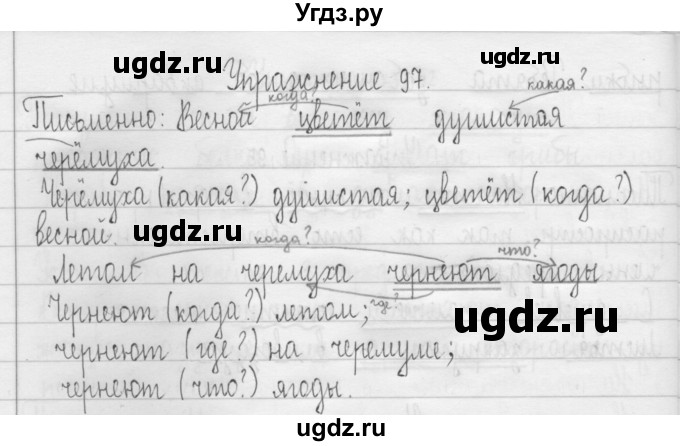 Угдз.ру
ugdz.ru
ugdz.ru
Упражнение 97.
когда?
какая?
Письменно: Весной цветёт душистая
черёмуха.
Черёмуха (какая?) душистая; цветёт (когда?)
весной.
ugdz.ru
когда?
что?
Летом на черемуха чернеют ягоды
Чернеют (когда?) летом;
где?
ugdz.ru
чернеют (где?) на черемуме;
чернеют (что?) ягоды.
ugdz.ru